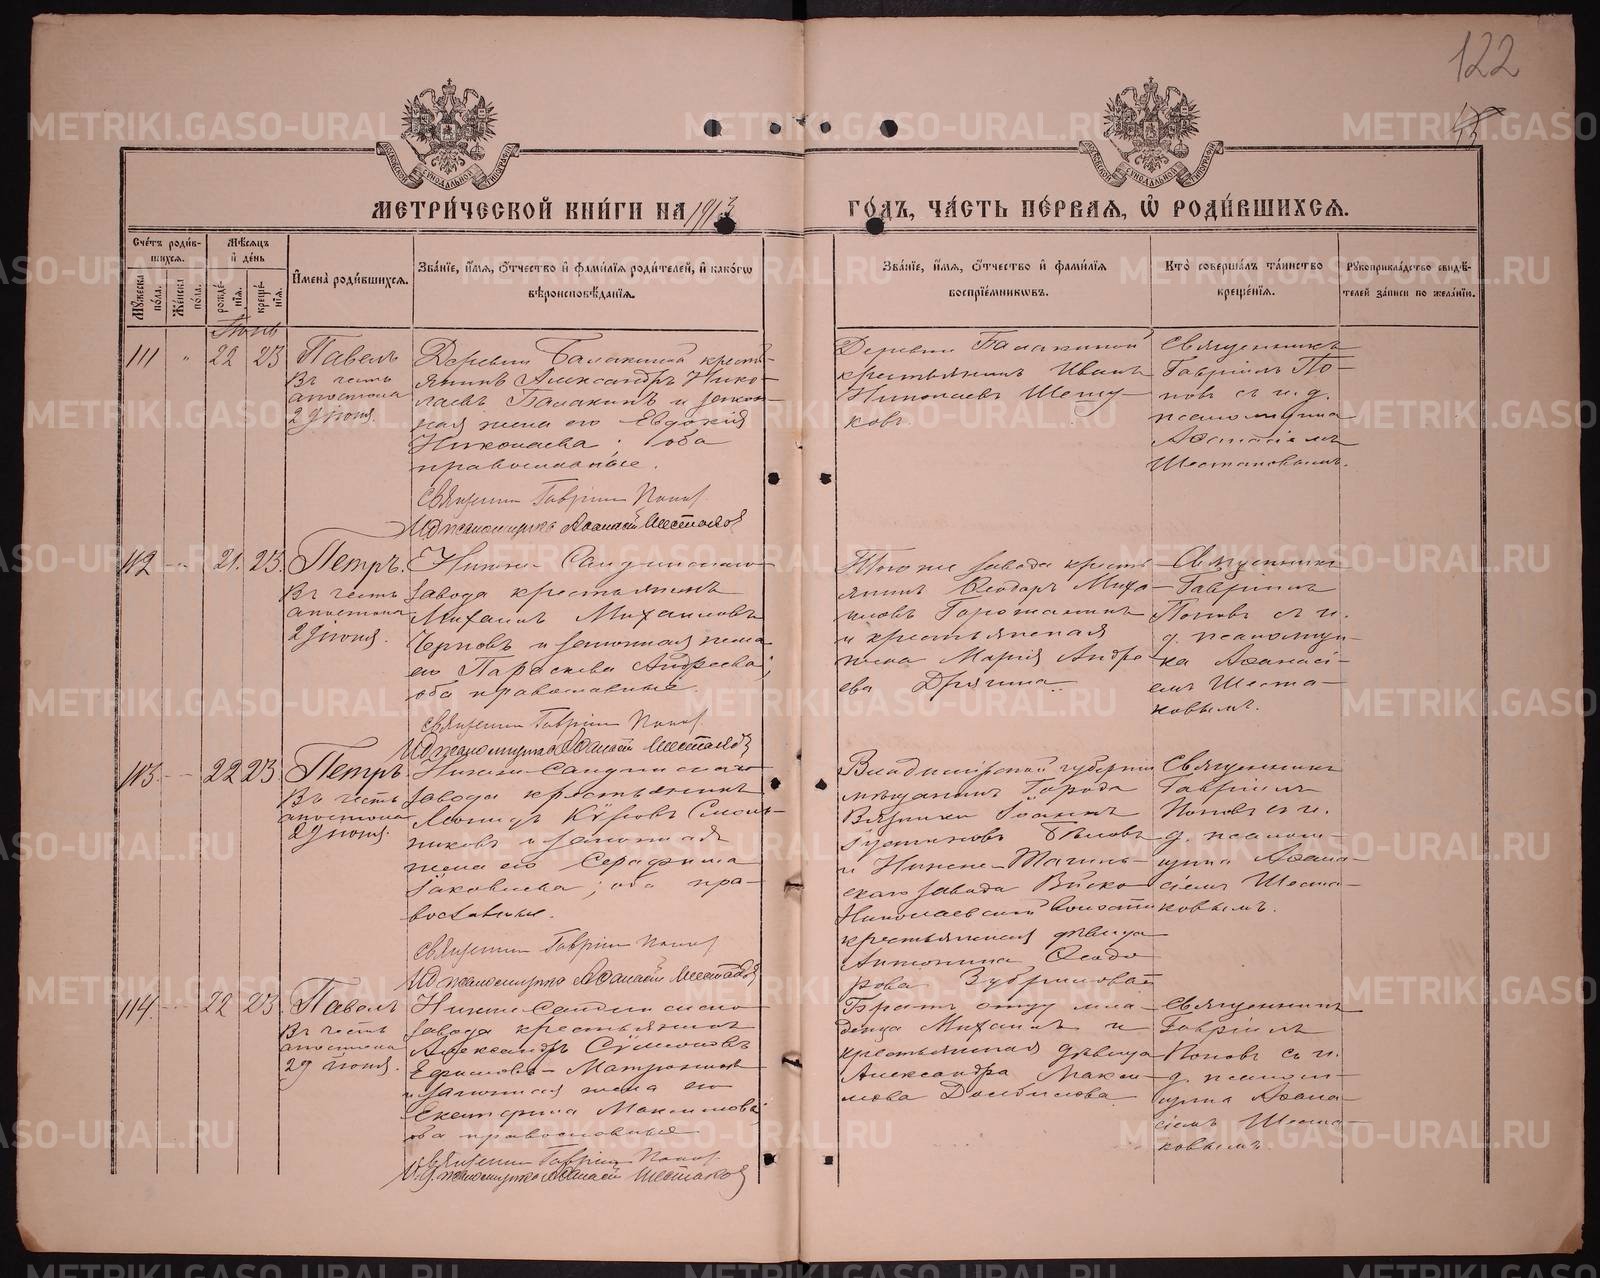 122
МЕТРИ́ЧЕСКОЙ КНИ́ГИ НА 1913
ГО́ДЪ, ЧА́СТЬ ПЕ́РВАЯ, Ѡ РОДИ́ВШИХСЯ.
Сче́тъ роди́вшихся.
Мѣ́сяцъ и҆ де́нь
Мꙋ́жеска по́ла.
Же́нска по́ла.
рожде́нїя.
креще́нїя.
И҆мена̀ роди́вшихся.
Зва́нїе, и҆́мя, ѻ҆́тчество и҆ фами́лїя роди́телей, и҆ како́гѡ
вѣроисповѣ́данїя.
Зва́нїе, и҆́мя, ѻ҆́тчество и҆ фами́лїя
воспрїе́мникѡвъ.
Кто̀ соверша́лъ та́инство
креще́нїя.
Рꙋкоприкла́дство свидѣ́-
телей за́писи по жела́нїю.
Іюнь
111 " 22 23
Павелъ
Въ честь
апостола
29 іюня.
Деревни Балакиной кресть-
янинъ Александръ Нико-
лаевъ Балакинъ и закон-
ная жена его Евдокія
Николаева; оба
православные.
Священникъ Гавріилъ Поповъ
И.д. псаломщика Аѳанасій Шестаковъ
Деревни Балакиной
крестьянинъ Иванъ
Николаевъ
ковъ.
Священникъ
Гавріилъ По-
повъ съ и. д.
псаломщика
Аѳанасіемъ
Шестаковымъ.
112 21. 23.
Петръ.
Въ честь
апостола
29 іюня.
Нижне-Салдинскаго
завода крестьянинъ
Михаилъ Михаиловъ
Черновъ и законная жена
его Параскева Андреева;
оба православные.
Священникъ Гавріилъ Поповъ
И.д. псаломщика Аѳанасій Шестаковъ
Того же завода кресть-
янинъ Ѳеодоръ Миха-
иловъ Горожанинъ
и крестьянская
жена Марія Андре-
ева
Священникъ
Гавріилъ
Поповъ съ и.
д. псаломщи-
ка Аѳанасі-
емъ Шеста-
ковымъ.
113 22 23
Петръ
Въ честь
апостола
29 іюня.
Нижне-Салдинскаго
завода крестьянинъ
Леонидъ
и законная
жена его Серафима
Іаковлева; оба пра-
вославные.
Священникъ Гавріилъ Поповъ
И.д. псаломщика Аѳанасій Шестаковъ
Владимірской губерніи
мѣщанинъ города
Вязники Іоаннъ
Іустиновъ Бѣловъ
и Нижне-Тагиль-
скаго завода Выйско-
Николаевской волости
крестьянская дѣвица
Антонина Ѳеодо-
рова
Священникъ
Гавріилъ
Поповъ съ и.
д. псалом-
щика Аѳана-
сіемъ Шеста-
ковымъ.
114 22 23
Павелъ
Въ честь
апостола
29 іюня.
Нижне-Салдинскаго
завода крестьянинъ
Александръ Сѵмеоновъ
и законная жена его
Екатерина Максимова;
оба православные
Священникъ Гавріилъ Поповъ
И.д. псаломщика Аѳанасій Шестаковъ
Братъ отцу мла-
денца Михаилъ и
крестьянская дѣвица
Александра Макси-
мова
Священникъ
Гавріилъ
Поповъ съ и.
д. псалом-
щика Аѳана-
сіемъ Шеста-
ковымъ.
METRIKI.GASO-URAL.RU